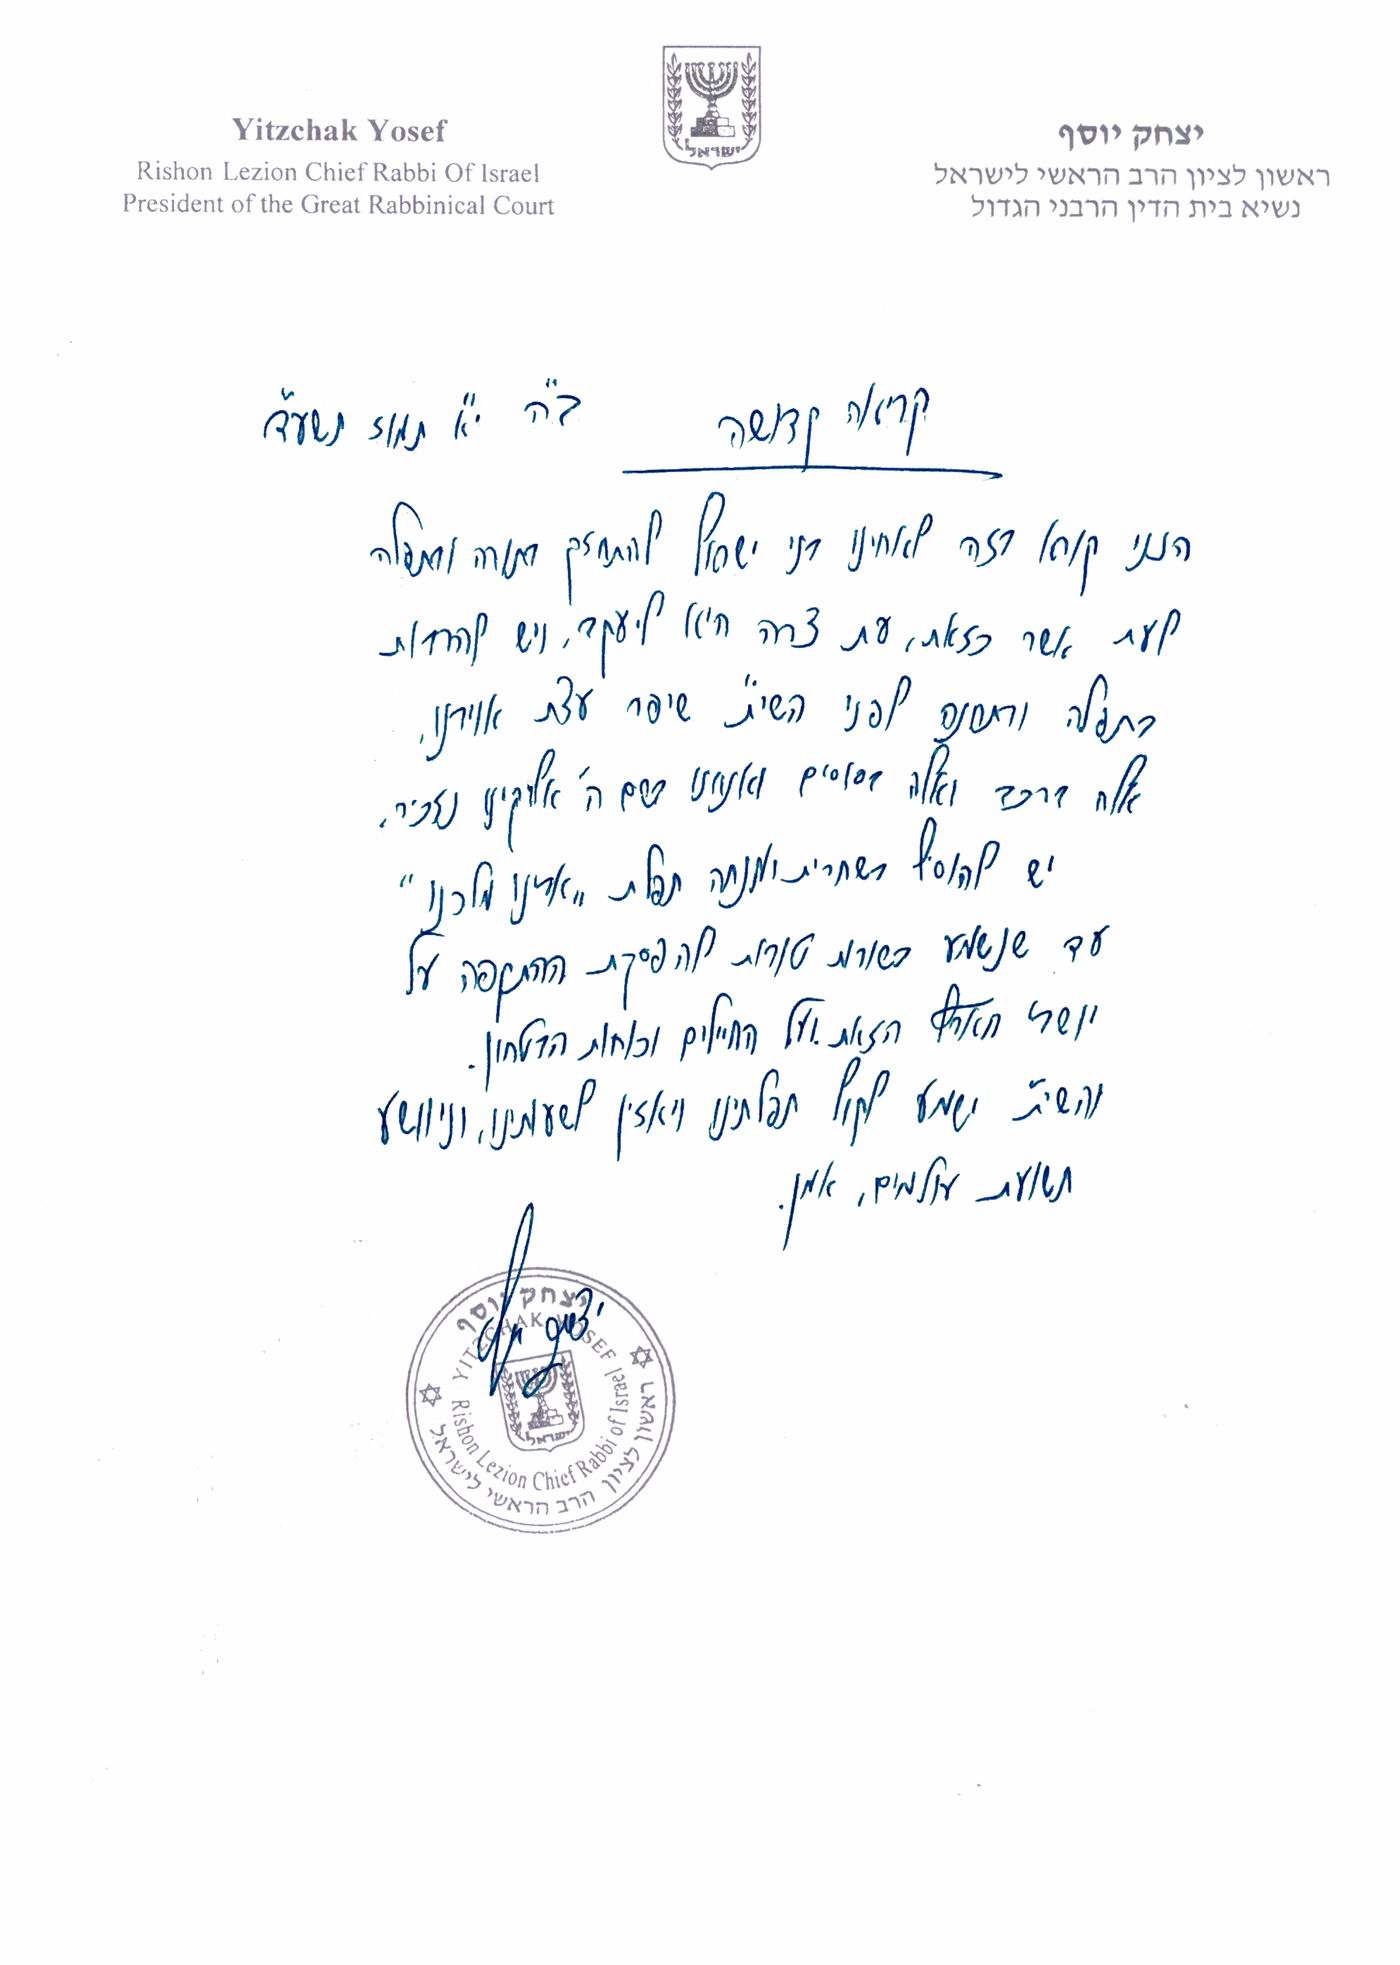 Yitzchak Yosef
Rishon Lezion Chief Rabbi Of Israel
President of the Great Rabbinical Court
ישראל
יצחק יוסף
ראשון לציון הרב הראשי לישראל
נשיא בית הדין הרבני הגדול
ב"ה י"א תמוז תשע"ד
קריאה קדושה
הנני קורא בזה לאחינו בני ישראל להתחזק בתורה ובתפלה
לעת אשר כזאת, עת צרה היא ליעקב, ויש להרבות
בתפלה ובתחנה לפני השי"ת שיפר עצת אויבנו,
אלה ברכב ואלה בסוסים ואנחנו בשם ה' אלוקינו נזכיר.
יש להוסיף בשחרית ומנחה תפלת "אבינו מלכנו"
עד שנשמע בשורות טובות להפסקת ההתקפה על
יושבי הארץ הזאת. ועל החיילים וכוחות הבטחון.
והשי"ת ישמע לקול תפלתינו ויאזין לשועתינו, וניוושע
תשועת עולמים, אמן.
יצחק יוסף
יצחק יוסף
YITZCHAK YOSEF
Rishon Lezion Chief Rabbi of Israel
ראשון לציון הרב הראשי לישראל
ישראל